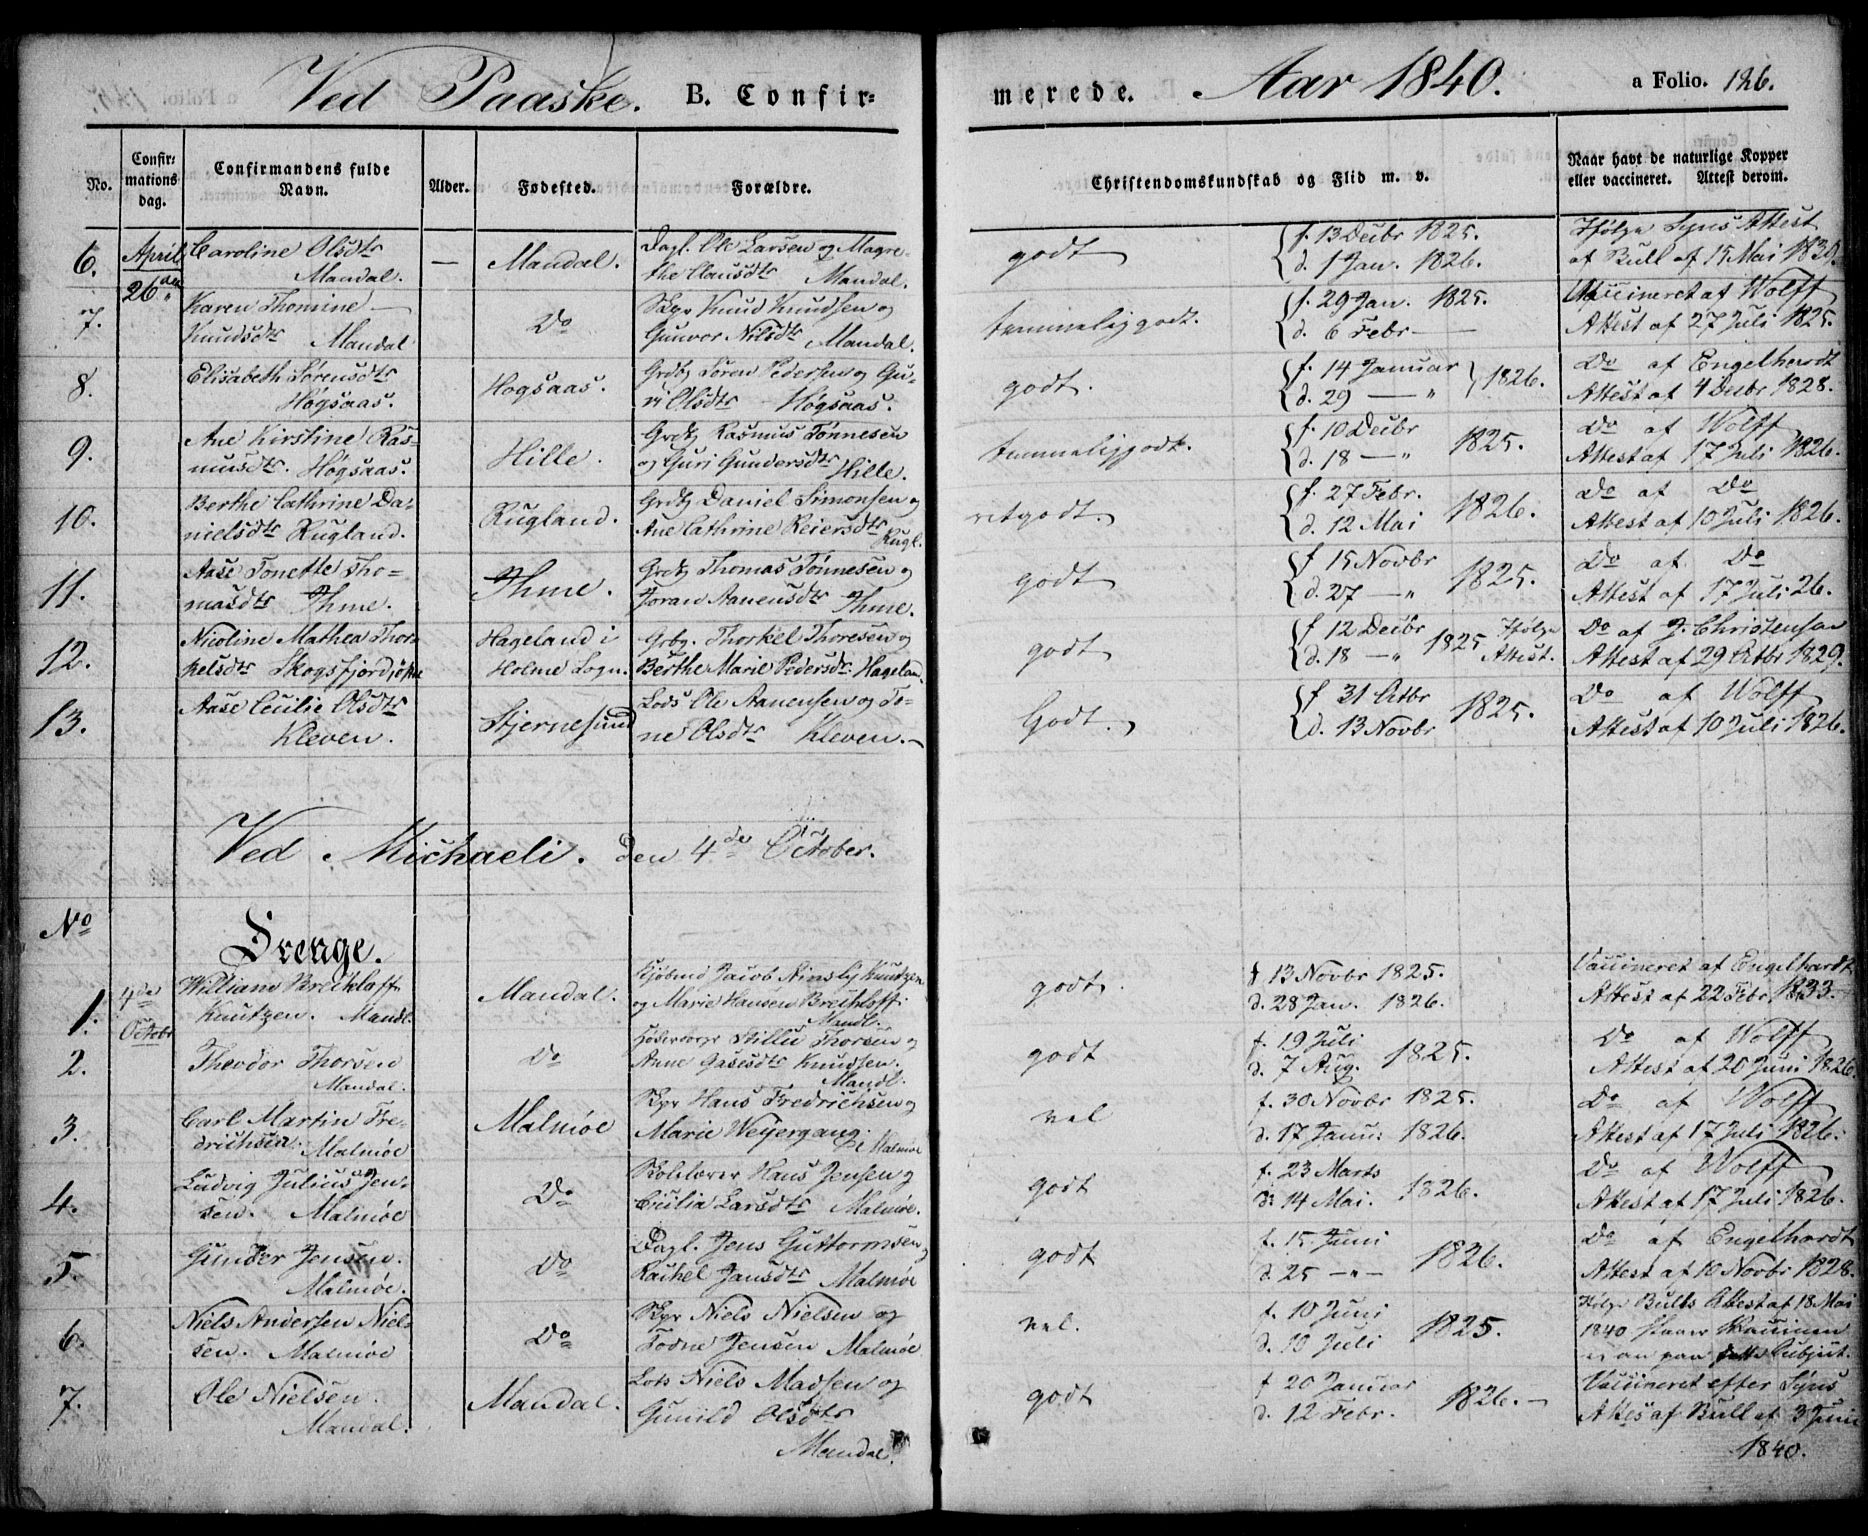 Ved Paaske. B. Confir= merede. Aar 1840. a Folio. 126.
No. Confir: mations dag. Confirmandens fulde Navn. Alder. Fødested. Forældre. Christendomskundskab og Flid m. v. Naar havt de naturlige Kopper eller vaccineret. Attest derom.
6. April 26de Caroline Olsdtr — Mandal. Dagl. Ole Larsen og Magre- godt f. 13 Decbr 1825. Ifølge Syns Attest
Mandal. the Clausdtr Mandal. d. 1 Jan. 1826. af Bull af 15 Mai 1839.
7. Karen Thomine Do Skpr Knud Knudsen og temmelig godt. f. 29 Jan. 1825. Vaccineret af Wolff
Knudsdtr Mandal Gunvor Nilsdtr Mandal. d. 6 Febr — Attest af 27 Juli 1825.
8. Elisabeth Sørensdtr Høgsaas. Grdbr Søren Pedersen og Gu- godt. f. 14 Januar 1826. Do af Engelhardt
Høgsaas. ri Olsdtr Høgsaas. d. 29 — " Attest af 4 Decbr 1828.
9. Ane Kirstine Ras- Hille. Grdbr Rasmus Tønnesen temmelig godt. f. 10 Decbr 1825. Do af Wolff
musdtr. Høgsaas. og Guri Gundersdtr Hille. d. 18 — " Attest af 17 Juli 1826.
10. Berthe Cathrine Da- Rugland. Grdbr Daniel Simonsen og retgodt. f. 27 Febr. 1826. Do af Do
nielsdtr Rugland. Ane Cathrine Reiersdtr Rugl. d. 12 Mai Attest af 10 Juli 1826.
11. Aase Tonette Tho- Ihme. Grdbr Thomas Tønnesen og godt f 15 Novbr 1825. Do af Do
masdtr Ihme. Joran Aanensdtr Ihme. d. 27 — " Attest af 17 Juli 26.
12. Nicoline Mathea Thor- Hageland i Grbr. Thorkel Thoresen og godt f 12 Decbr 1825 Ifølge Do af J. Christensen
kelsdtr Skogsfjord Holme Sogn. Berthe Marie Pedersdtr. Hageland. d. 18 — " Attest. Attest af 29 Octbr 1829.
13. Aase Cecilie Olsdtr Stjernesund Lods Ole Aanensen og To- Godt. f 31 Octbr 1825. Do af Wolff
Kleven. ne Olsdtr Kleven. — d. 13 Novbr Attest af 10 Juli 1826.
Ved Michaeli. den 4de October.
No Drenge.
1. 4de Octobr William Breckloff Mandal. Kjøbmd Jacob Ainsly Knutzen godt. f 13 Novbr 1825. Vaccineret af Engelhardt
Knutzen. Mandl. og Marie Hansen Breckloff. Mandl. d. 28 Jan. 1826. Attest af 22 Febr 1833.
2. Theodor Thorsen Do Thorsen og godt f. 19 Juli 1825. Do af Wolff
Mandal. Anne Knudsen. Mandl. d. 7 Aug. Attest af 20 Juni 1826.
3. Carl Martin Fre- Malmøe Skpr Hans Fredrichsen og vel f. 30 Novbr 1825. Do af Wolff
drichsen. Malmøe Marie Weyergang. Malmøe d. 17 Janu: 1826. Attest af 17 Juli 1826.
4. Ludvig Julius Jen- Do Skolelærer Hans Jensen og godt f. 23 Marts 1826. Do af Wolff
sen. Malmøe Cecilia Larsdtr Malmøe. d: 14 Mai. Attest af 17 Juli 1826.
5. Gunder Jensen. Do Dagl. Jens Guttormsen og godt f. 15 Juni 1826. Do af Engelhardt
Malmøe. Rachel Jansdtr Malmøe d. 25 — " — Attest af 10 Novbr 1828.
6. Niels Andersen Niel- Do Skpr Niels Nielsen og vel. f. 10 Juni 1825. Ifølge Bulls Attest af 18 Mai
sen. Malmøe Todne Jensen Malmøe d. 10 Juli 1840 staaer Vaccinen
ei an paa dette Subject.
7. Ole Nielsen. Mandal. Lots Niels Madsen og godt f 20 Januar 1826. — Vaccineret efter Syns
Mandal. Gunild Olsdtr d. 12 Febr. Attes af Bull af 3 Juni
Mandal. 1840.